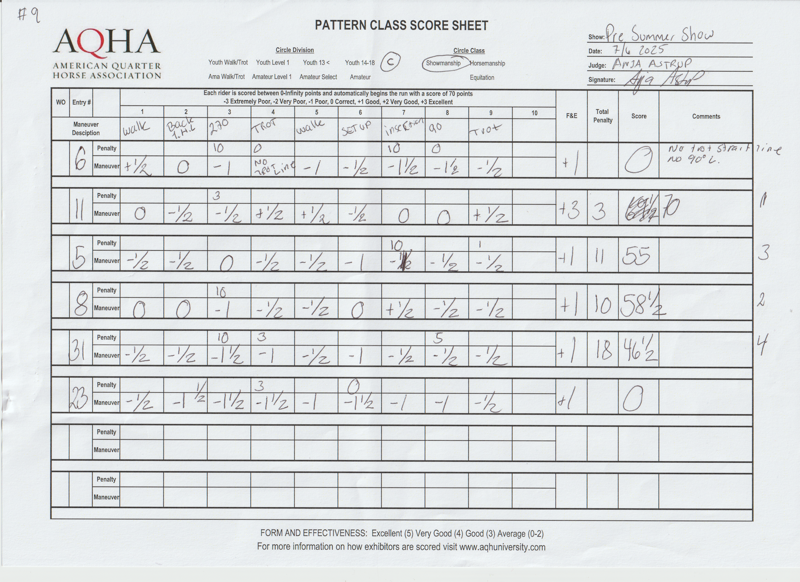 #9
PATTERN CLASS SCORE SHEET
AQHA
AMERICAN QUARTER
HORSE ASSOCIATION
Circle Division
Youth Walk/Trot Youth Level 1 Youth 13 < Youth 14-18 C
Ama Walk/Trot Amateur Level 1 Amateur Select Amateur
Circle Class
Showmanship Horsemanship
Equitation
Show: Pre Summer Show
Date: 7/6 2025
Judge: ANJA ASTRUP
Signature:
Each rider is scored between 0-Infinity points and automatically begins the run with a score of 70 points
-3 Extremely Poor, -2 Very Poor, -1 Poor, 0 Correct, +1 Good, +2 Very Good, +3 Excellent
WO Entry # 1 2 3 4 5 6 7 8 9 10 F&E Total Penalty Score Comments
Maneuver Desciption walk Back 270 TROT walk SETUP 90 TROT
6 Penalty 10 0 10 0
Maneuver +½ 0 -1 No Trot Line -1 -½ -1½ -1½ -½ +1 0 No trot straight line
no 90° L.
11 Penalty 3
Maneuver 0 -½ -½ +½ +½ -½ 0 0 +½ +3 3 70 1
5 Penalty 10 1
Maneuver -½ -½ 0 -½ -½ -1 -½ -½ +1 11 55 3
8 Penalty 10
Maneuver 0 0 -1 -½ -½ 0 +½ -½ -½ +1 10 58½ 2
31 Penalty 10 3 5
Maneuver -½ -½ -1½ -1 -½ -1 -½ -½ -½ +1 18 46½ 4
23 Penalty 3 0
Maneuver -½ -1½ -1½ -1½ -1 -1½ -1 -1 -½ +1 0
Penalty
Maneuver
Penalty
Maneuver
FORM AND EFFECTIVENESS: Excellent (5) Very Good (4) Good (3) Average (0-2)
For more information on how exhibitors are scored visit www.aqhuniversity.com